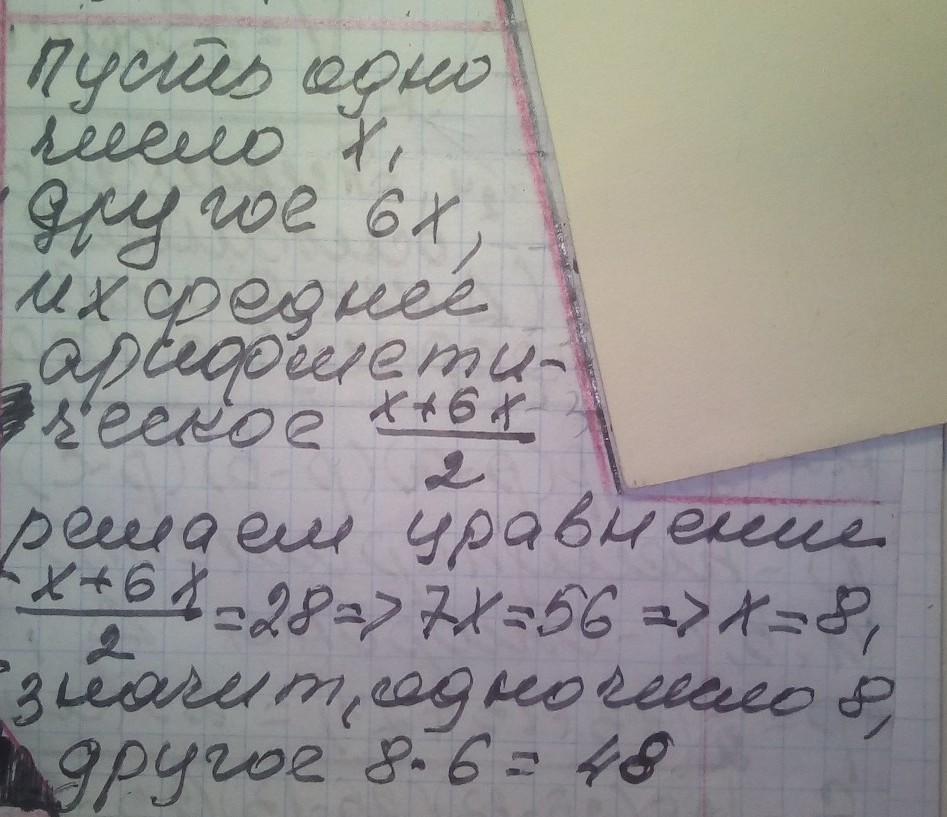 Пусть одно
число x,
другое 6x,
их среднее
арифмети-
ческое x+6x/2
решаем уравнение
x+6x/2 =28=>7x=56=>x=8,
значит, одно число 8,
другое 8·6=48